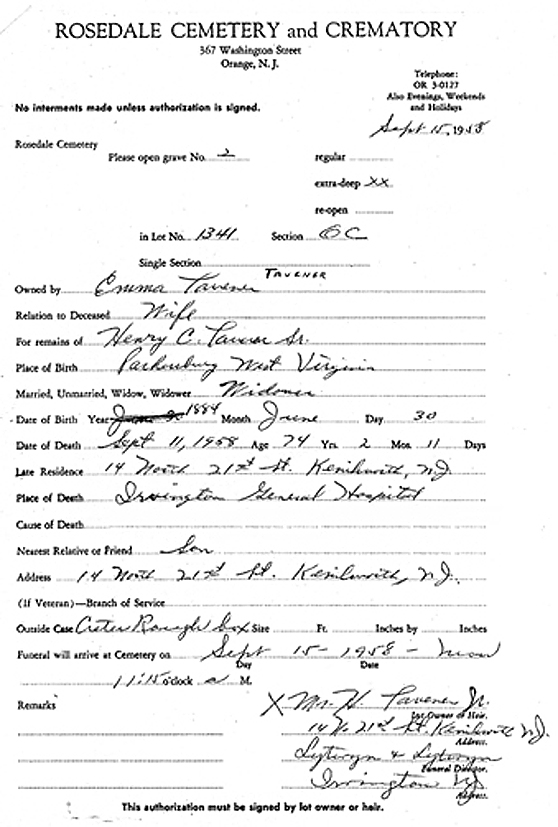 ROSEDALE CEMETERY and CREMATORY
367 Washington Street
Orange, N. J.
Telephone:
OR 3-0127
Also Evenings, Weekends
and Holidays
No interments made unless authorization is signed.
Sept 15, 1958
Rosedale Cemetery
Please open grave No. 2 regular
extra-deep XX
re-open
in Lot No. 1341 Section C
Single Section
TAVENER
Owned by Emma Tavener
Relation to Deceased Wife
For remains of Henry C. Tavener Sr.
Place of Birth Parkersburg West Virginia
Married, Unmarried, Widow, Widower Widower
Date of Birth Year 1884 Month June Day 30
Date of Death Sept 11, 1958 Age 74 Yrs. 2 Mos. 11 Days
Late Residence 14 North 21st St. Kenilworth, N.J.
Place of Death Irvington General Hospital
Cause of Death
Nearest Relative or Friend Son
Address 14 North 21st St. Kenilworth, N.J.
(If Veteran)—Branch of Service
Outside Case Rough Box Size Ft. Inches by Inches
Funeral will arrive at Cemetery on Sept 15 - 1958 - Mon
Day Date
11:15 o'clock a M.
Remarks X Mr. H. Tavener Jr.
Lot Owner or Heir.
14 N. 21st St. Kenilworth N.J.
Address.
Funeral Director.
Irvington NJ
Address.
This authorization must be signed by lot owner or heir.